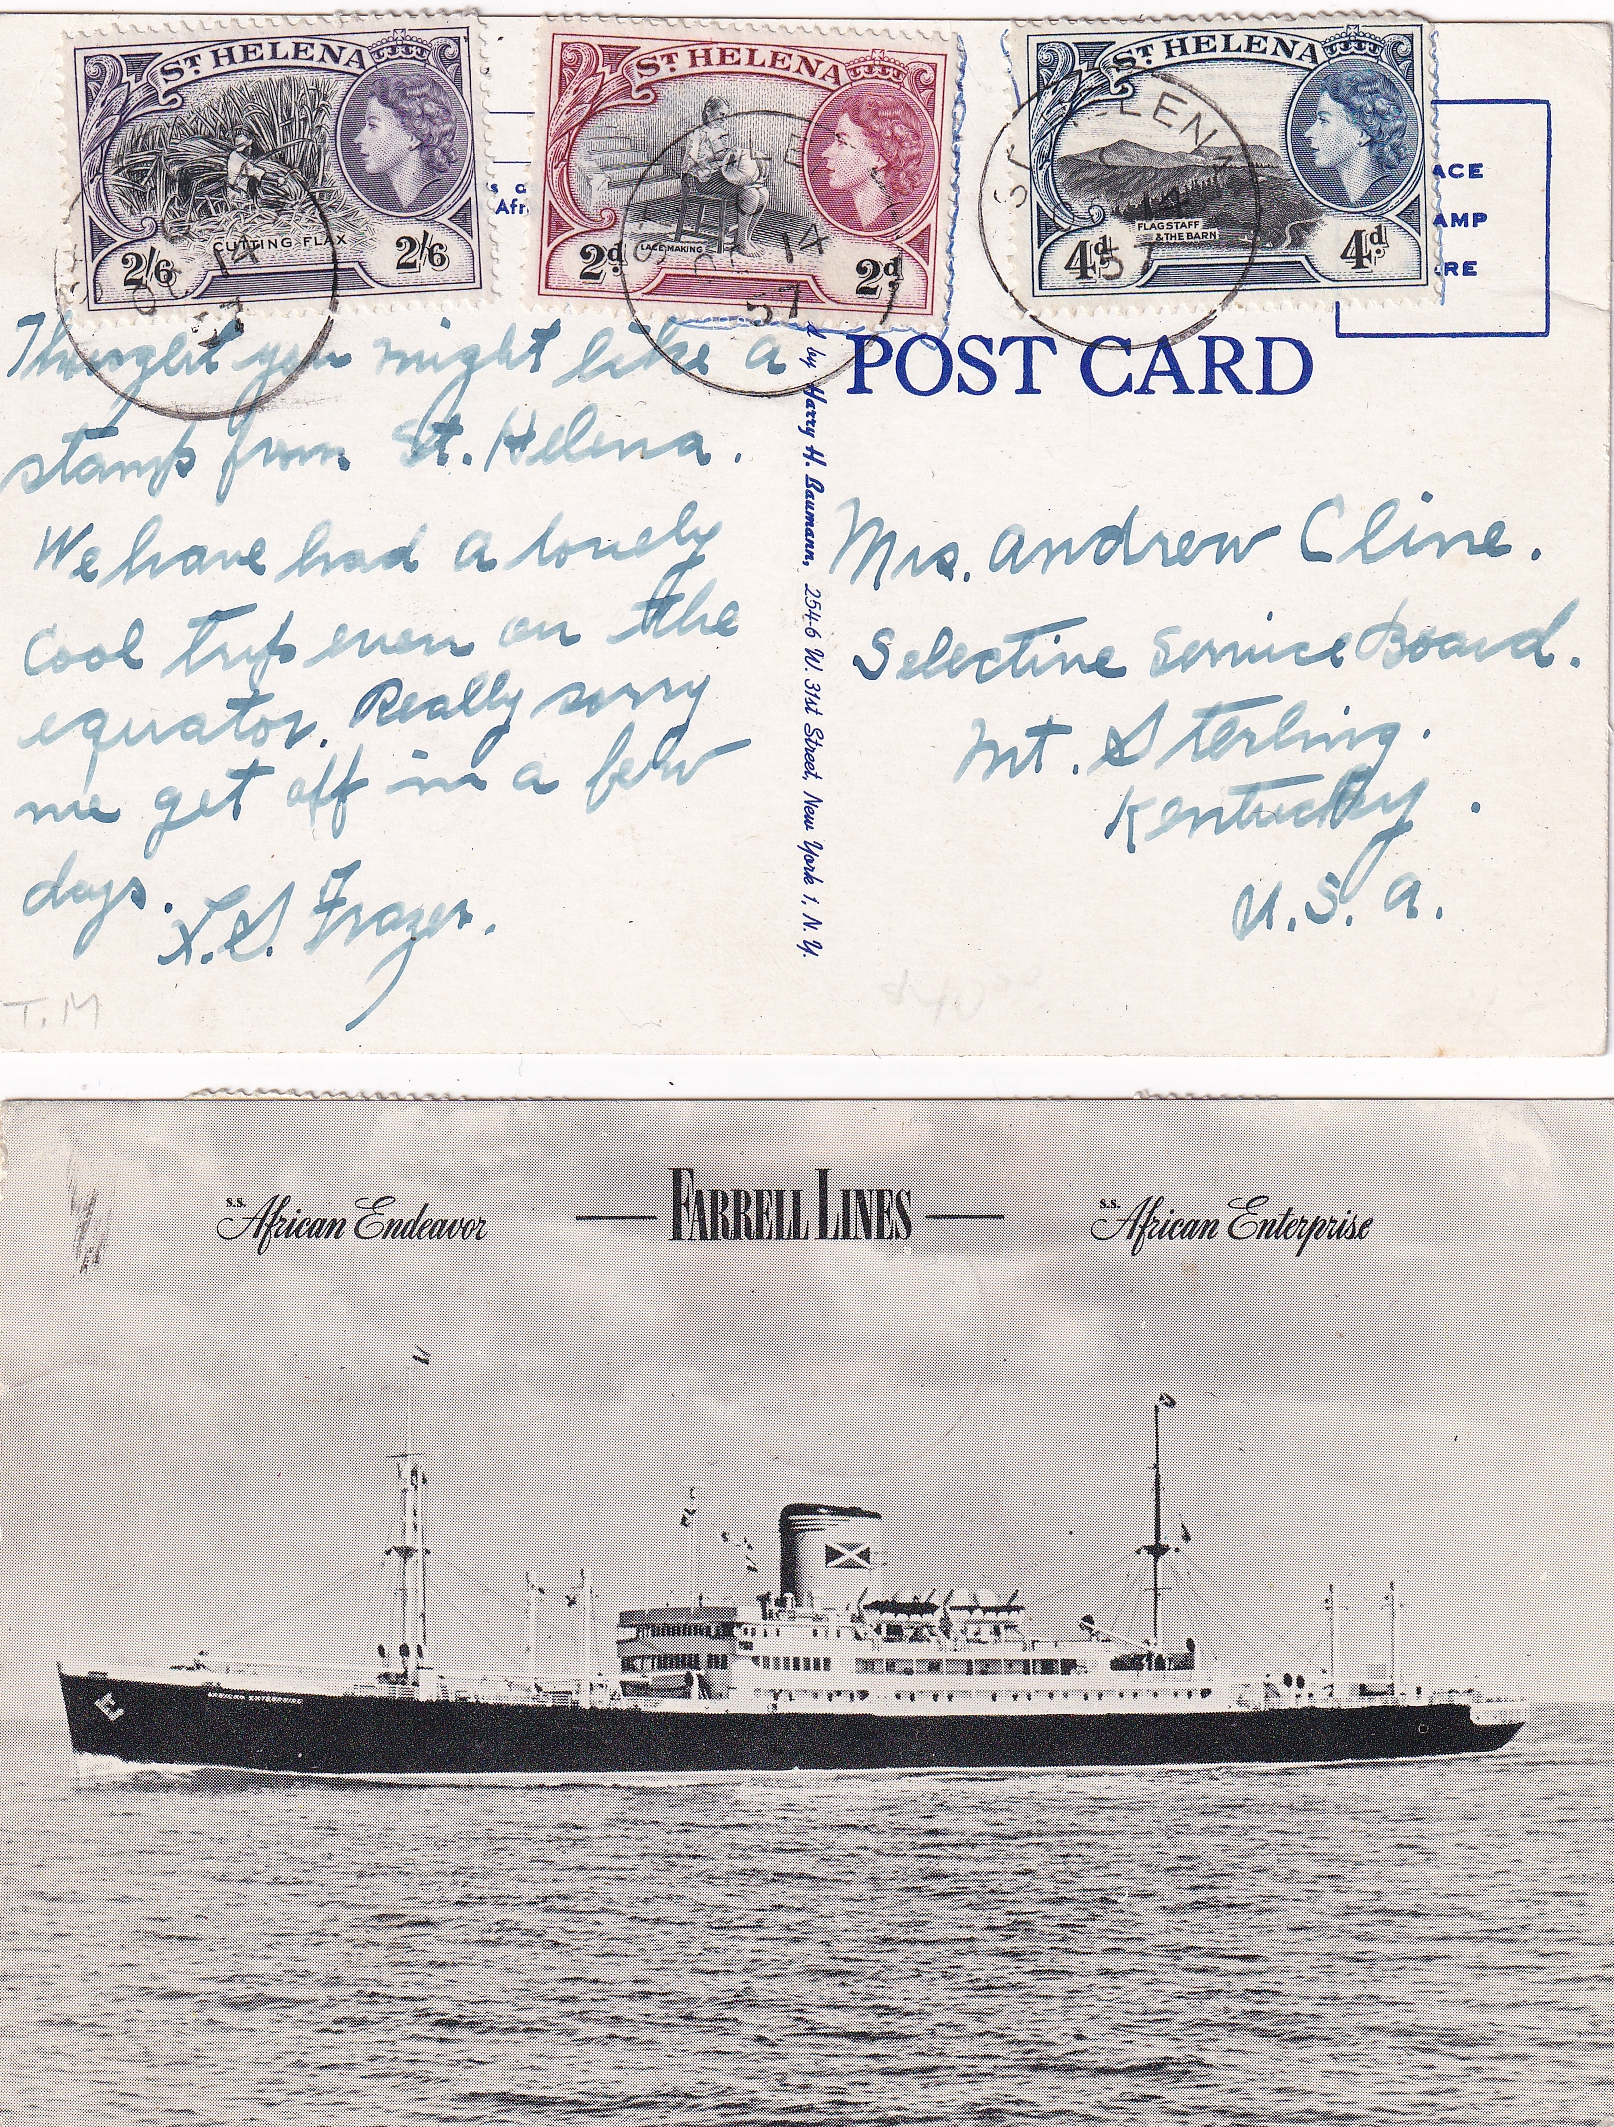 ST HELENA
CUTTING FLAX
2/6 2/6
ST HELENA
LACE MAKING
2d 2d
ST HELENA
FLAGSTAFF
& THE BARN
4d 4d
OC 14
57
OC 14
57
14
57
ACE
AMP
RE
Afr
POST CARD
Thought you might like a
stamp from St. Helena.
We have had a lovely
cool trip even on the
equator. Really sorry
we get off in a few
days.
L.S. Frazer.
T.M
d by Harry H. Baumann, 254-6 W. 31st Street, New York 1, N.Y.
Mrs. Andrew Cline.
Selective Service Board.
Mt. Sterling.
Kentucky.
U.S.A.
S.S. African Endeavor
FARRELL LINES
S.S. African Enterprise
AFRICAN ENTERPRISE